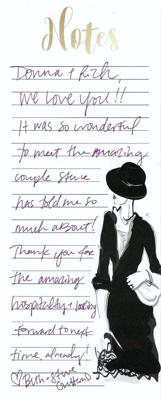 Notes
Donna & Rich,
We love you!!
It was so wonderful
to meet the amazing
couple Steve
has told me so
much about!
Thank you for
the amazing
hospitality & looking
forward to next
time, already!
♡ Beth & Steve